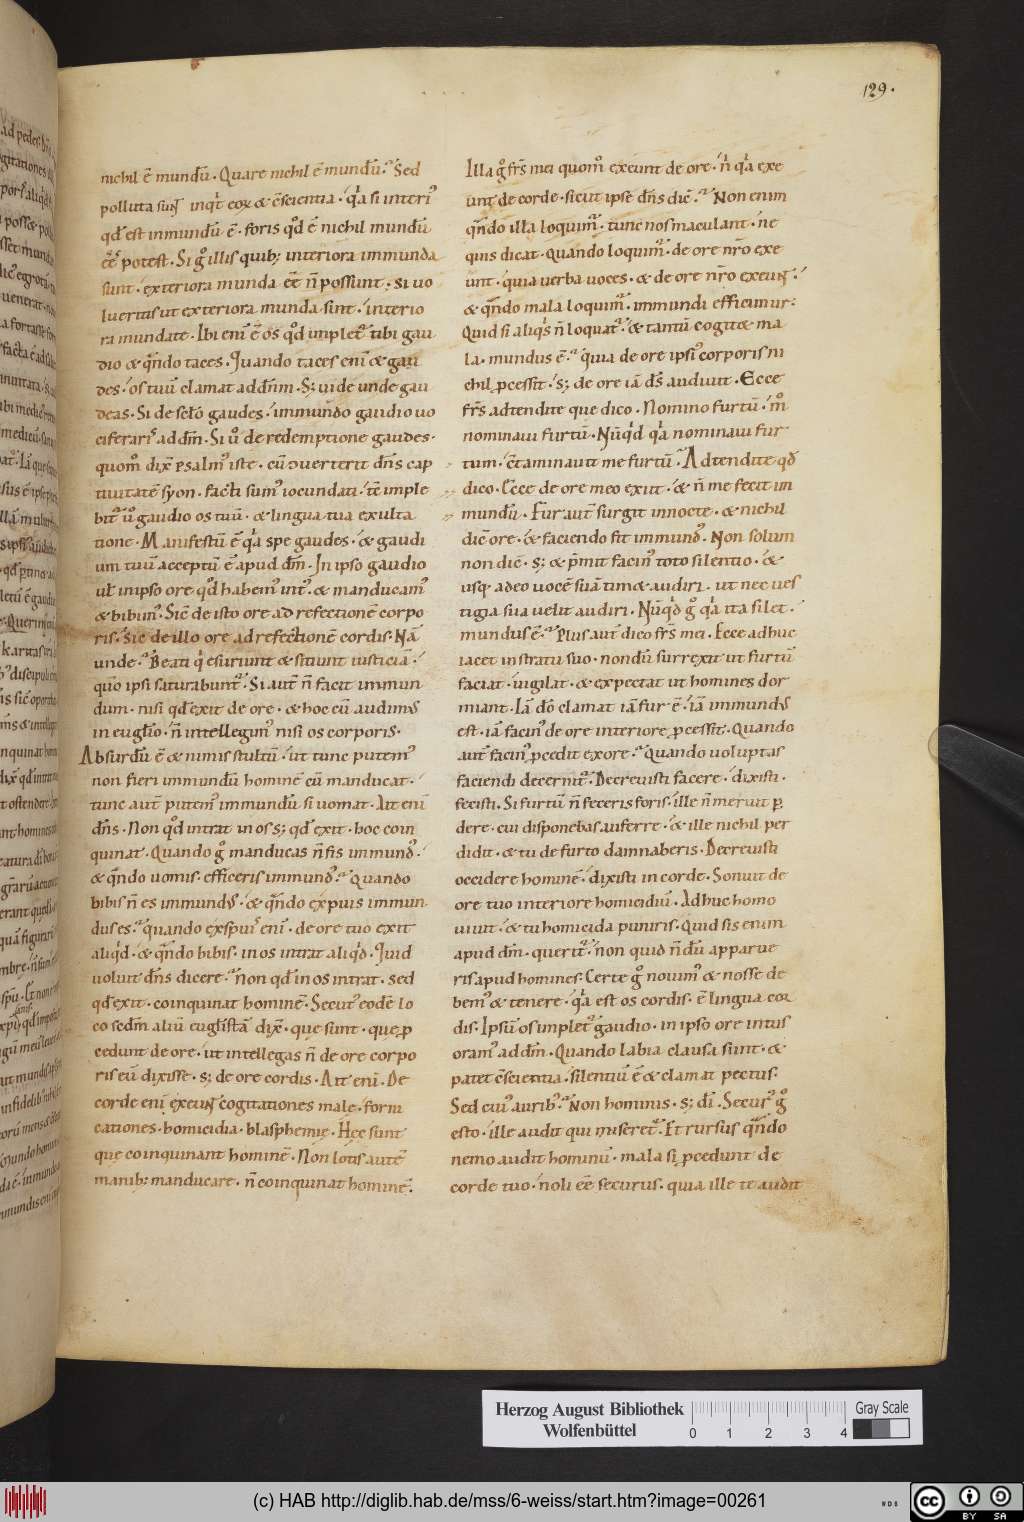 129.
nichil ē mundū. Quare nichil ē mundū? Sed
polluta sunt inqͥt eoꝝ & c̄scientia. qͥa si interiꝰ
qd̄ est inmundū ē. foris qd̄ ē nichil mundū
eē potest. Si gͦ illis quibꝫ interiora immunda
sunt. exteriora munda eē n̄ possunt; si uo
lueritis ut exteriora munda sint. interio
ra mundate. Ibi eni ē os qd̄ implet̄ tibi gau
dio & qn̄do taces. Quando taces eni & gau
des. os tuū clamat ad dn̄m. Sꝫ uide unde gau
deas. Si de sclo gaudes. immundo gaudio uo
ciferaris ad dm̄. Si uͦ de redemptione gaudes.
quom̊ dix̄ psalmꝰ iste. cū auerterit dn̄s cap
tiuitatē syon. facti sumꝰ iocundati. tc̄ imple
bit̄ uͦ gaudio os tuū. & lingua tua exulta
tione. Manifestū ē qͥa spe gaudes. & gaudi
um tuū acceptū ē apud dm̄. In ipso gaudio
ul̄ in ipso ore qd̄ habemꝰ intꝰ. & manducamꝰ
& bibimꝰ. Sic̄ de isto ore ad refectionē corpo
ris. sic de illo ore ad refectionē cordis. Nā
unde. Beati qͥ esuriunt & sitiunt iusticiā.
quo ipsi saturabunt̄. Si aut̄ n̄ facit immun
dum. nisi qd̄ exit de ore. & hoc cū audimꝰ
in euglio. n̄ intellegimꝰ nisi os corporis.
Absurdū ē & nimis stultū. ut tunc putemꝰ
non fieri immundū hominē cū manducat.
tunc aut̄ putemꝰ immundū si uomat. Ait eni
dn̄s. Non qd̄ intrat in os sꝫ qd̄ exit. hoc coin
quinat. Quando gͦ manducas n̄ fis immundꝰ.
& qn̄do uomis. efficeris immundꝰ. Quando
bibis n̄ es immundꝰ. & qn̄do expuis immun
dus es. quando exspuis eni. de ore tuo exit
aliqͥd. & qn̄do bibis. in os intrat aliqͥd. Quid
uoluit dn̄s dicere. non qd̄ in os intrat. sed
qd̄ exit. coinquinat hominē. Secutꝰ eodē lo
co sedm̄ aliū euglistā dix̄. que sunt. que ꝓ
cedunt de ore. ut intellegas n̄ de ore corpo
ris eū dixisse. sꝫ de ore cordis. Ait eni. De
corde eni exeunt cogitationes male. forni
cationes. homicidia. blasphemię. Hęc sunt
que coinquinant hominē. Non lotis autē
manibꝫ manducare. n̄ coinquinat hominē.
Illa gͦ frs̄ mei quom̊ exeunt de ore. n̄ qͥa exe
unt de corde. sicut ipse dn̄s dic̄. Non enim
qn̄do illa loquimur. tunc nos maculant. ne
quis dicat. quando loquimur. de ore nr̄o exe
unt. quia uerba uoces. & de ore nr̄o exeunt.
& qn̄do mala loquimur. immundi efficimur.
Quid si aliqͥs n̄ loquatur. & tantū cogitet ma
la. mundus ē. quia de ore ipsiꝰ corporis ni
chil ꝓcessit. sꝫ de ore iā ds̄ audiuit. Ecce
frs̄ adtendite que dico. Nomino furtū. m̊
nominaui furtū. Nūqͥd qͥa nominaui fur
tum. c̄taminauit me furtū. Adtendite qd̄
dico. Ecce de ore meo exiit. & n̄ me fecit in
mundū. Fur aut̄ surgit in nocte. & nichil
dic̄ ore. & faciendo fit immundꝰ. Non solum
non dic̄. sꝫ & p̄mit facinꝰ toto silentio. &
usqꝫ adeo uocē suā timet audiri. ut nec ues
tigia sua uelit audiri. Nūqͥd gͦ qͥa ita silet.
mundus ē. Plus aut̄ dico frs̄ mei. Ecce adhuc
iacet in stratu suo. nondū surrexit ut furtū
faciat. uigilat. & expectat ut homines dor
miant. Iā do clamat iā fur ē. iā immundꝰ
est. iā facinꝰ de ore interiore ꝓcessit. Quando
aut̄ facinꝰ ꝓcedit ex ore. Quando uoluptas
faciendi decernitur. Decreuisti facere. dixisti.
fecisti. Si furtū n̄ feceris foris. ille n̄ meruit ꝑ
dere. cui disponebas auferre. & ille nichil per
didit. & tu de furto damnaberis. Decreuisti
occidere hominē. dixisti in corde. Sonuit de
ore tuo interiore homicidiū. Adhuc homo
uiuit. & tu homicida puniris. Quid sis enim
apud dm̄. queritur. non quid n̄dū apparue
ris apud homines. Certe gͦ nouimꝰ & nosse de
bemꝰ & tenere. qͥa est os cordis. ē lingua cor
dis. Ipsū os implet̄ gaudio. in ipso ore intus
oramꝰ ad dm̄. Quando labia clausa sunt. &
patet c̄scientia. silentiū ē & clamat pectus.
Sed cuiꝰ auribꝰ. Non hominis. sꝫ di. Securꝰ gͦ
esto. ille audit qui miseret̄. Et rursus qn̄do
nemo audit hominū. mala si ꝓcedunt de
corde tuo. noli eē securus. quia ille te audit
Herzog August Bibliothek
Wolfenbüttel
0 1 2 3 4
Gray Scale
(c) HAB http://diglib.hab.de/mss/6-weiss/start.htm?image=00261
WDB
cc BY SA